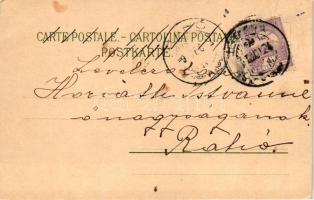 CARTE POSTALE. - CARTOLINA POSTALE
POSTKARTE.
Levelező
Horváth Istvánné
őnagyságának
Rahó.